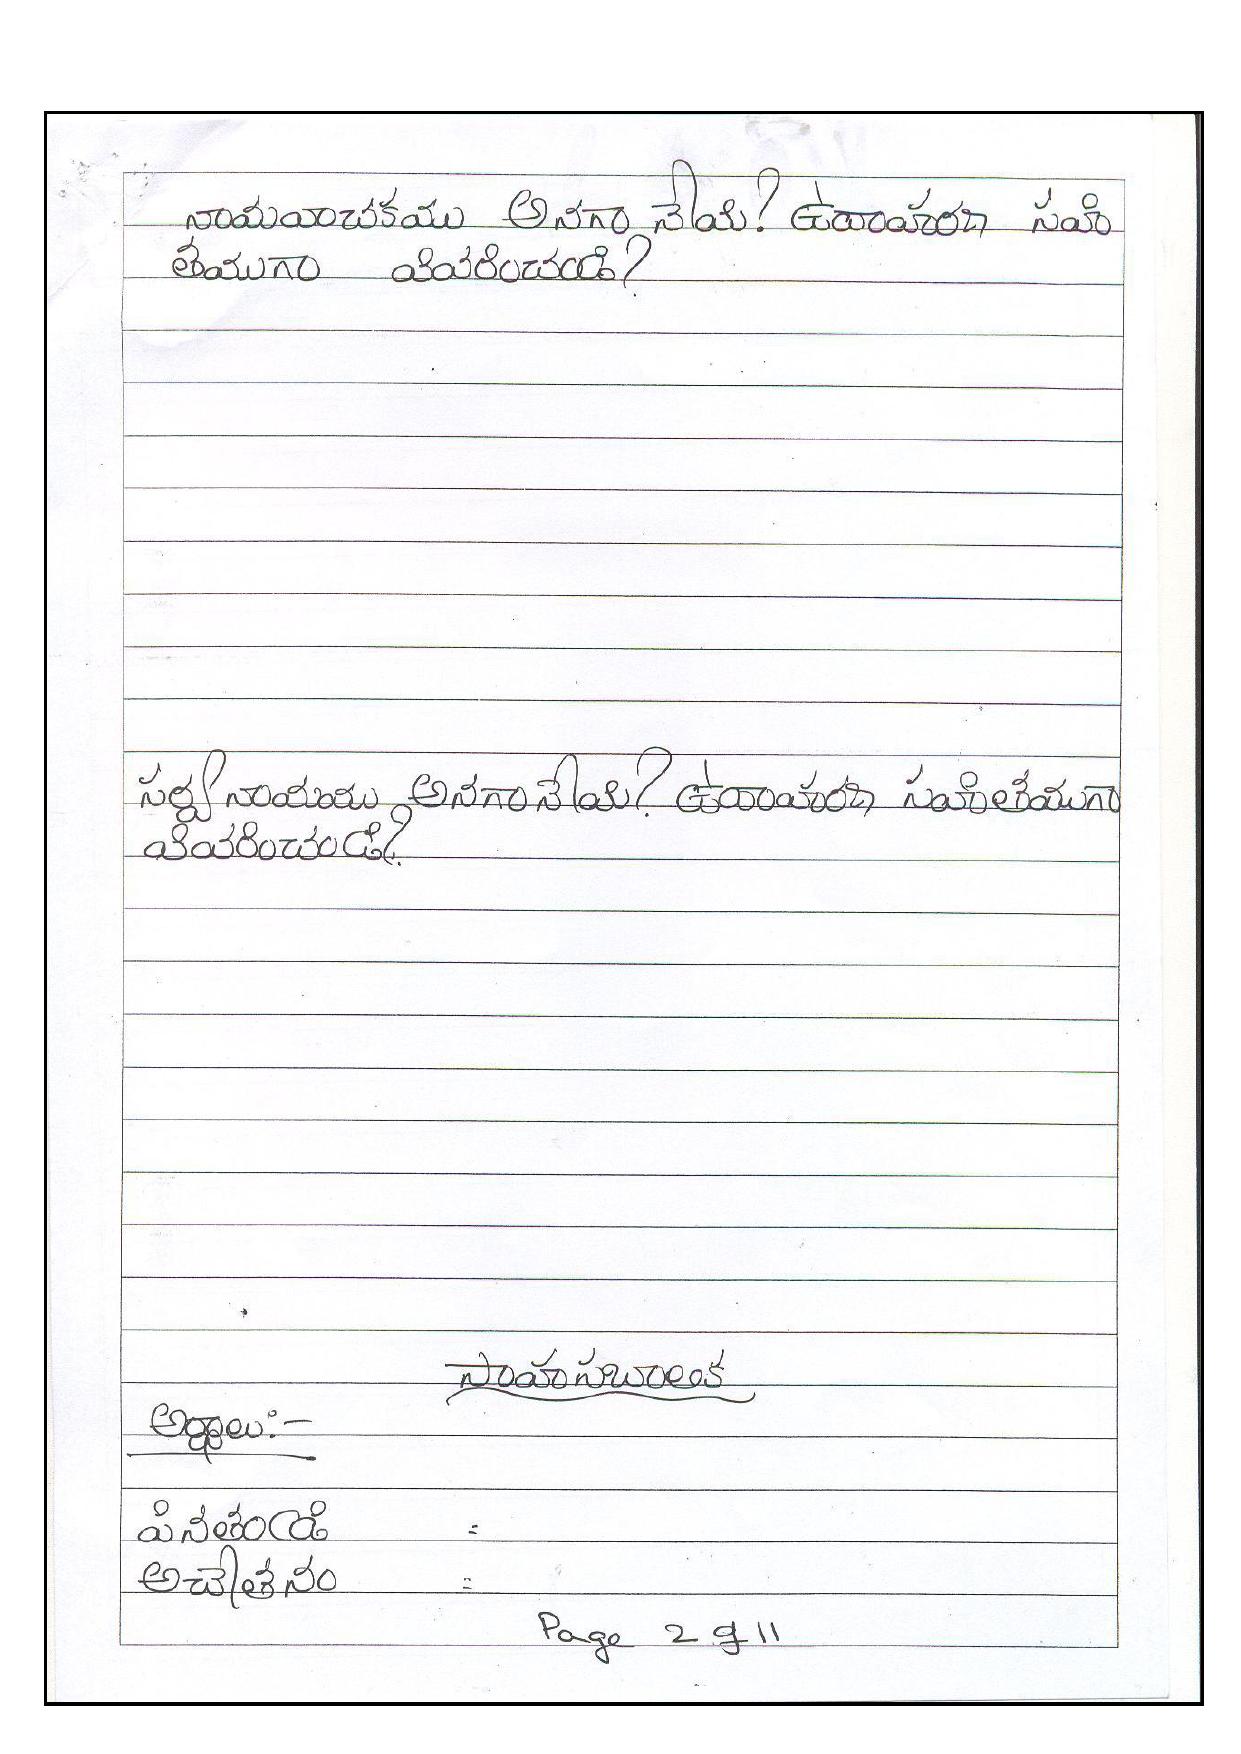 నామవాచకము అనగా నేమి? ఉదాహరణ సహి
తముగా వివరించండి?
సర్వనామము అనగానేమి? ఉదాహరణ సహితముగా
వివరించండి?
అర్థాలు:-
పినతండ్రి =
అచేతనం =
Page 2 of 11